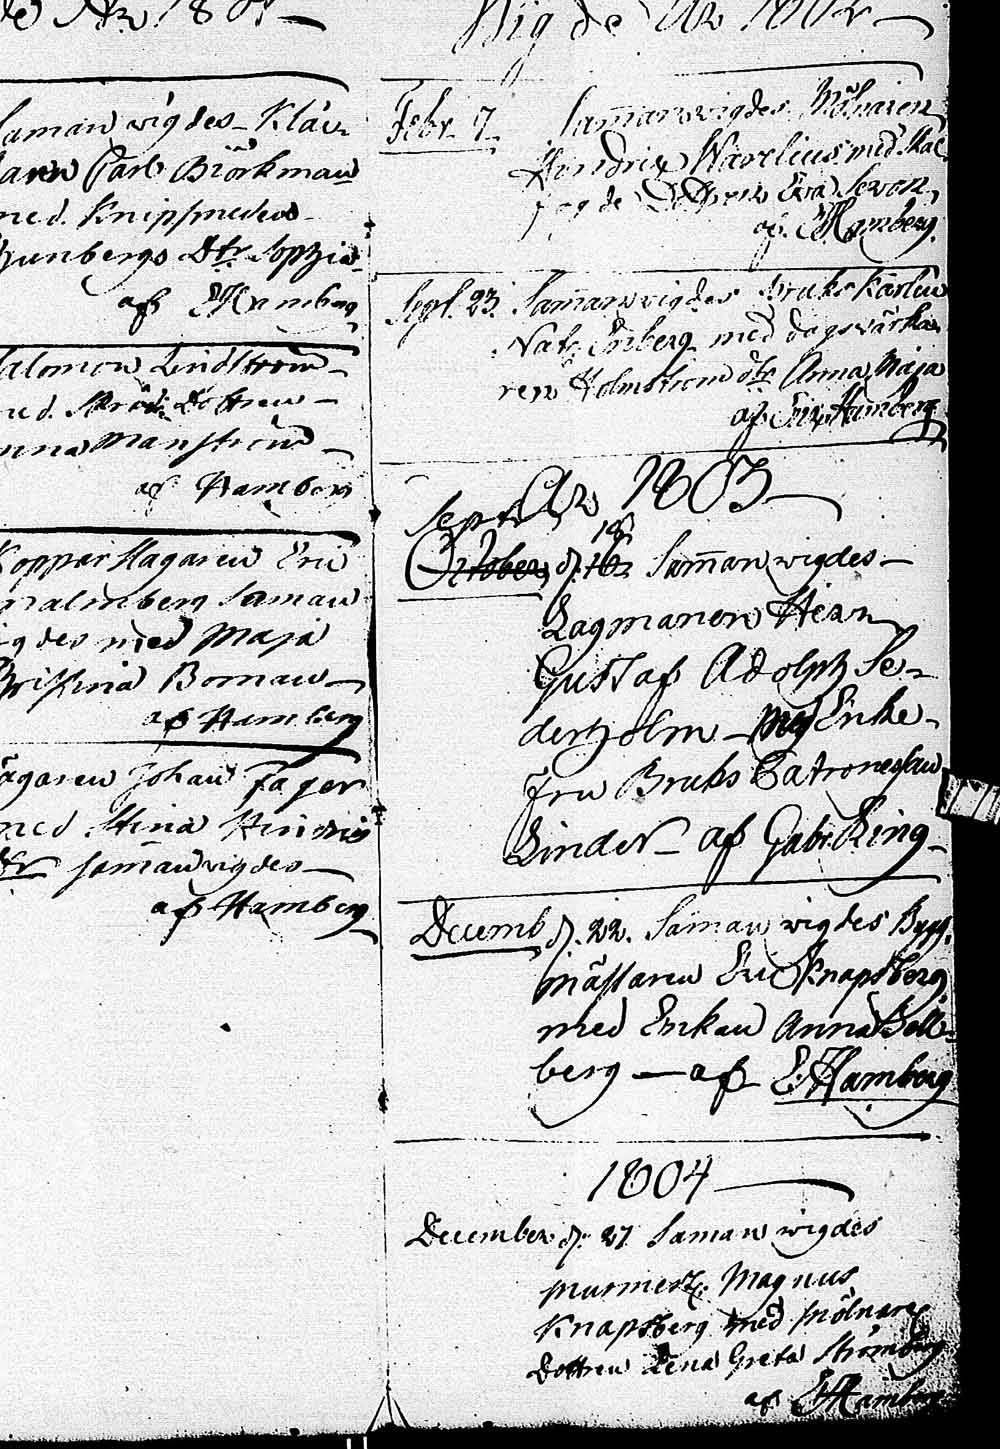 de År 1801
Saman wigdes Klän
aren Carl Biörkman
med Knipsmeden
Ljunbergs Dtr. Sophia
af E Hamberg
Salomon Lindström
med Dottren
Anna Manström
af Hamberg
Kopparslagaren Eric
Malmberg Saman
wigdes med Maja
Christina Boman
af Hamberg
Johan Fager
med Stina Hindrics
dtr samanwigdes
af Hamberg
Wigde År 1802
Febr. 7. Samanwigdes
Hendric Warelius med
Eva
af E Hamberg
Sept. 23. Samanwigdes Bruks Karlen
Nath. Enberg med dagswärka
ren Holmstrom dtr Anna Maja
af Eric Hamberg
År 1803
Sept.
18
October d. 16. Saman wigdes
Lagmanen Herr
Gustaf Adolph Se-
derholm med Enke-
fru Bruks Patronessan
Linder af Gabr. Ring
Decemb d. 22. Saman wigdes Bygg
mästaren Eric Knapsberg
med Enkan Anna Bell-
berg af E. Hamberg
1804
December d. 27 Saman wigdes
murmest. Magnus
Knapsberg med mölnare
Dottren Lena Greta Strömberg
af E Hamberg